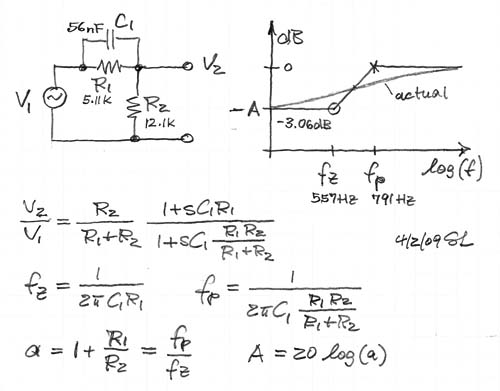 56nF C₁
R₁
5.11K
V₁
V₂
R₂
12.1K
dB
0
-A
-3.06dB
actual
fz fp log(f)
557Hz 791Hz
V₂/V₁ = R₂/(R₁+R₂) (1+SC₁R₁)/(1+SC₁ R₁R₂/(R₁+R₂))
4/2/09 SL
fz = 1/(2πC₁R₁) fp = 1/(2πC₁ R₁R₂/(R₁+R₂))
a = 1+ R₁/R₂ = fp/fz A = 20 log(a)